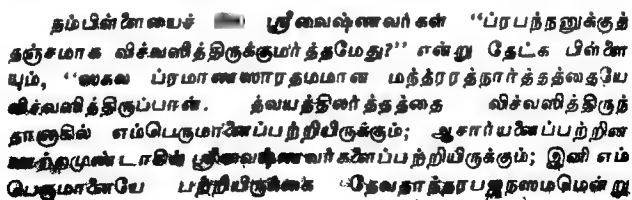 நம்பிள்ளையைச் ஸ்ரீவைஷ்ணவர்கள் “ப்ரபந்நனுக்குத்
தஞ்சமாக விச்வஸித்திருக்குமர்த்தமேது?” என்று கேட்க பிள்ளை
யும், “ஸகல ப்ரமாணஸாரதமமான மந்த்ரரத்நார்த்தத்தையே
விச்வஸித்திருப்பான். த்வயத்திலர்த்தத்தை விச்வஸித்திருந்
தானாகில் எம்பெருமானைப்பற்றியிருக்கும்; ஆசார்யனைப்பற்றின
ஸ்ரீவைஷ்ணவர்களைப்பற்றியிருக்கும்; இனி எம்
பெருமானையே பற்றியிருக்கை தேவதாந்தரபஜநஸமமென்று